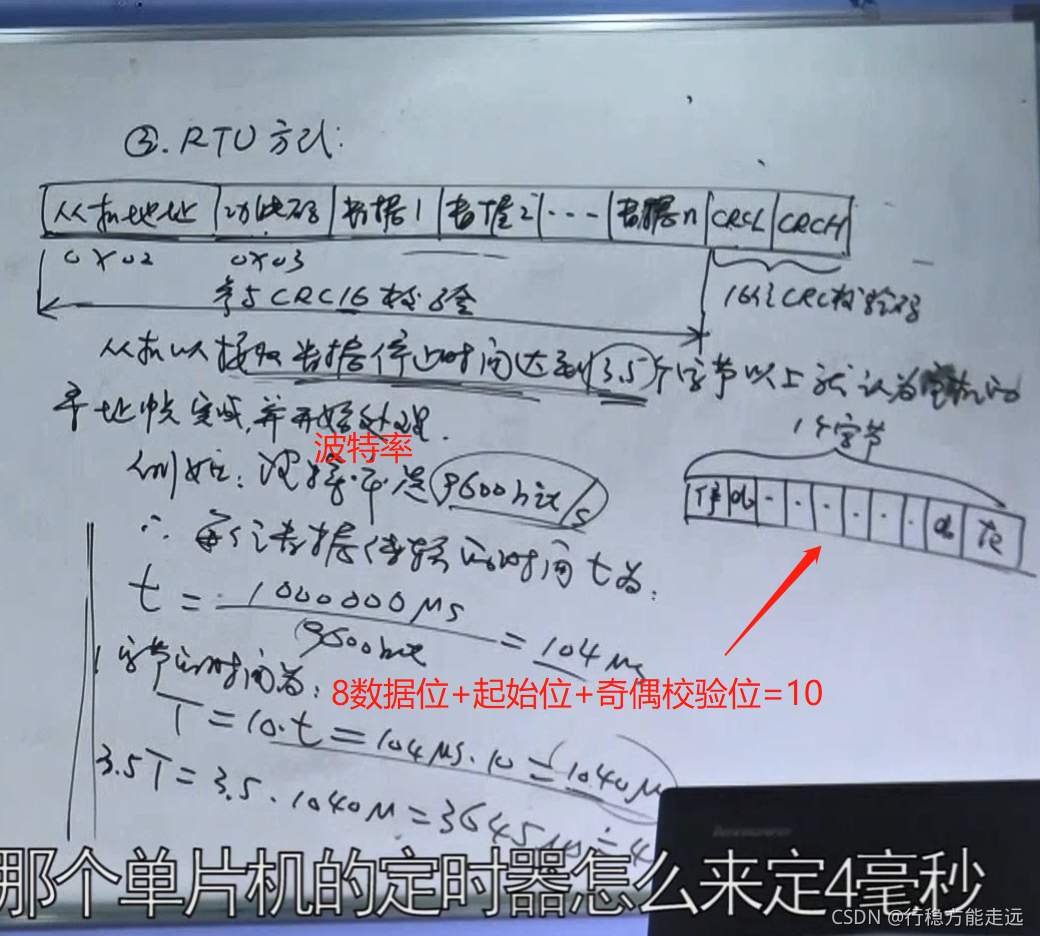 ③.RTU方式:
从机地址 功能码 数据1 数据2 ··· 数据n CRCL CRCH
0x02 0x03
参与CRC16校验
16位CRC校验码
从机以接收数据停止时间达到3.5个字节以上就认为
帧完成,并开始处理.
1个字节
波特率
例如:波特率是9600bit/s
停 d₀ · · · · · ·
∴每个位数据传输的时间t为:
t = 1000000μs / 9600bit = 104μs
1字节的时间为:
8数据位+起始位+奇偶校验位=10
T = 10·t = 104μs·10 = 1040μ
3.5T = 3.5·1040μ = 3645μs ≐ 4
lenovo
那个单片机的定时器怎么来定4毫秒
CSDN @行稳方能走远